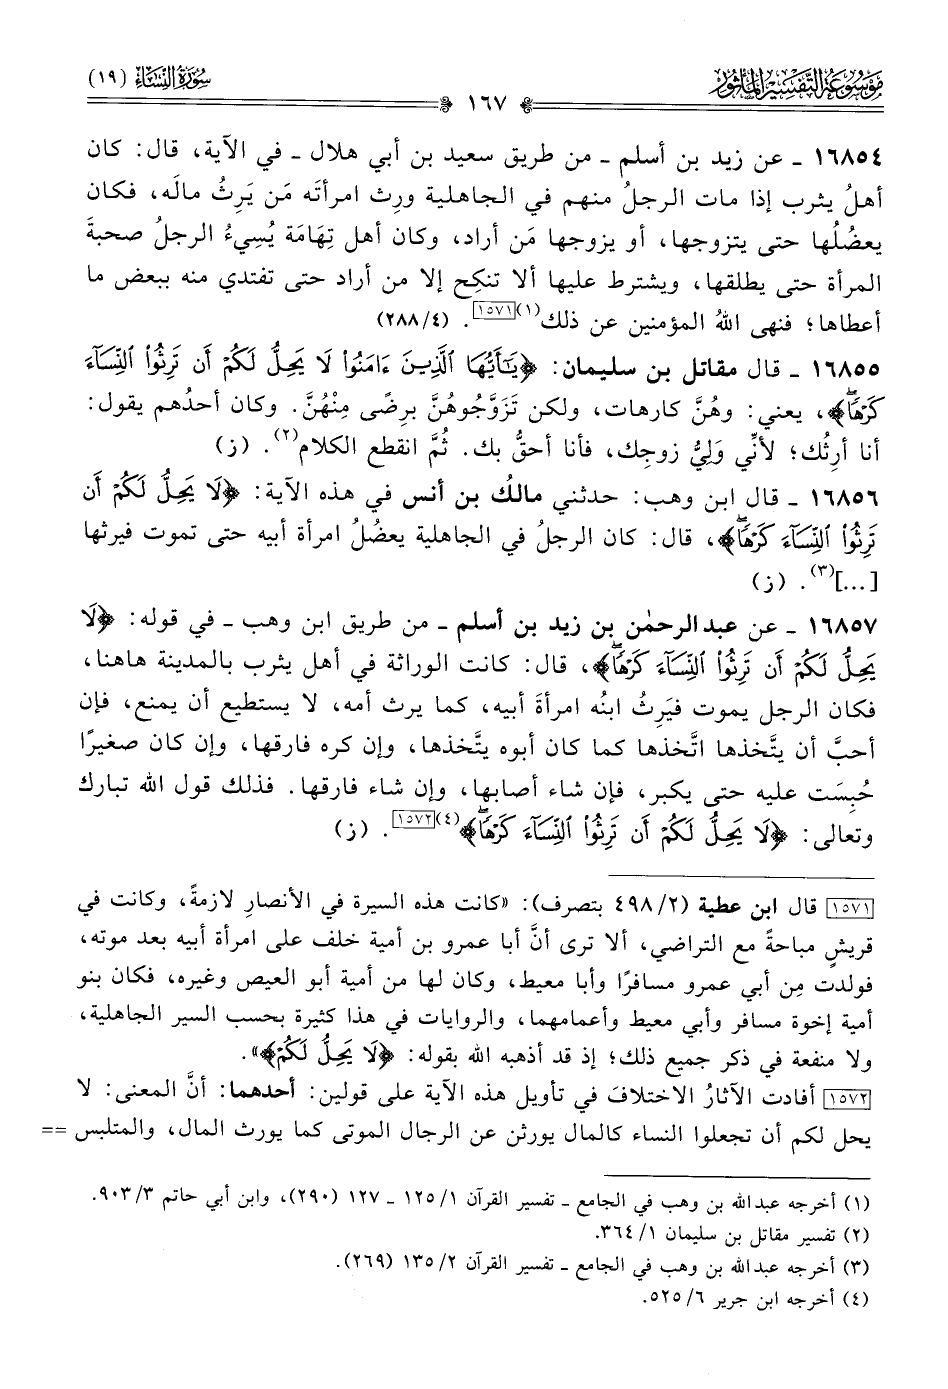 مَوْسُوعَةُ التَّفْسِيرِ المَأْثُورِ
سُورَةُ النِّسَاءِ (١٩)
١٦٧
١٦٨٥٤ ـ عن زيد بن أسلم ـ من طريق سعيد بن أبي هلال ـ في الآية، قال: كان
أهلُ يثرب إذا مات الرجلُ منهم في الجاهلية ورِث امرأتَه مَن يَرِثُ مالَه، فكان
يعضُلُها حتى يتزوجها، أو يزوجها مَن أراد، وكان أهل تِهَامَة يُسِيءُ الرجلُ صحبةَ
المرأة حتى يطلقها، ويشترط عليها ألا تنكِح إلا من أراد حتى تفتدي منه ببعض ما
أعطاها؛ فنهى اللهُ المؤمنين عن ذلك(١)[١٥٧١]. (٢٨٨/٤)
١٦٨٥٥ ـ قال مقاتل بن سليمان: ﴿يَٰٓأَيُّهَا ٱلَّذِينَ ءَامَنُوا۟ لَا يَحِلُّ لَكُمْ أَن تَرِثُوا۟ ٱلنِّسَآءَ
كَرْهًاۖ﴾، يعني: وهُنَّ كارهات، ولكن تَزَوَّجُوهُنَّ برِضًى مِنْهُنَّ. وكان أحدُهم يقول:
أنا أرِثُك؛ لأنِّي وَلِيُّ زوجِك، فأنا أحقُّ بك. ثُمَّ انقطع الكلام(٢). (ز)
١٦٨٥٦ ـ قال ابن وهب: حدثني مالكُ بن أنس في هذه الآية: ﴿لَا يَحِلُّ لَكُمْ أَن
تَرِثُوا۟ ٱلنِّسَآءَ كَرْهًاۖ﴾، قال: كان الرجلُ في الجاهلية يعضُلُ امرأة أبيه حتى تموت فيرثها
[...](٣). (ز)
١٦٨٥٧ ـ عن عبدالرحمٰن بن زيد بن أسلم ـ من طريق ابن وهب ـ في قوله: ﴿لَا
يَحِلُّ لَكُمْ أَن تَرِثُوا۟ ٱلنِّسَآءَ كَرْهًاۖ﴾، قال: كانت الوراثة في أهل يثرب بالمدينة هاهنا،
فكان الرجل يموت فيَرِثُ ابنُه امرأةَ أبيه، كما يرث أمه، لا يستطيع أن يمنع، فإن
أحبَّ أن يتَّخذها اتَّخذها كما كان أبوه يتَّخذها، وإن كره فارقها، وإن كان صغيرًا
حُبِسَت عليه حتى يكبر، فإن شاء أصابها، وإن شاء فارقها. فذلك قول الله تبارك
وتعالى: ﴿لَا يَحِلُّ لَكُمْ أَن تَرِثُوا۟ ٱلنِّسَآءَ كَرْهًاۖ﴾(٤)[١٥٧٢]. (ز)
[١٥٧١] قال ابن عطية (٤٩٨/٢ بتصرف): «كانت هذه السيرة في الأنصارِ لازمةً، وكانت في
قريشٍ مباحةً مع التراضي، ألا ترى أنَّ أبا عمرو بن أمية خلف على امرأة أبيه بعد موته،
فولدت مِن أبي عمرو مسافرًا وأبا معيط، وكان لها من أمية أبو العيص وغيره، فكان بنو
أمية إخوة مسافر وأبي معيط وأعمامهما، والروايات في هذا كثيرة بحسب السير الجاهلية،
ولا منفعة في ذكر جميع ذلك؛ إذ قد أذهبه الله بقوله: ﴿لَا يَحِلُّ لَكُمْ﴾».
[١٥٧٢] أفادت الآثارُ الاختلافَ في تأويل هذه الآية على قولين: أحدهما: أنَّ المعنى: لا
يحل لكم أن تجعلوا النساء كالمال يورثن عن الرجال الموتى كما يورث المال، والمتلبس ==
(١) أخرجه عبدالله بن وهب في الجامع ـ تفسير القرآن ١/ ١٢٥ ـ ١٢٧ (٢٩٠)، وابن أبي حاتم ٣/ ٩٠٣.
(٢) تفسير مقاتل بن سليمان ١/ ٣٦٤.
(٣) أخرجه عبدالله بن وهب في الجامع ـ تفسير القرآن ٢/ ١٣٥ (٢٦٩).
(٤) أخرجه ابن جرير ٦/ ٥٢٥.